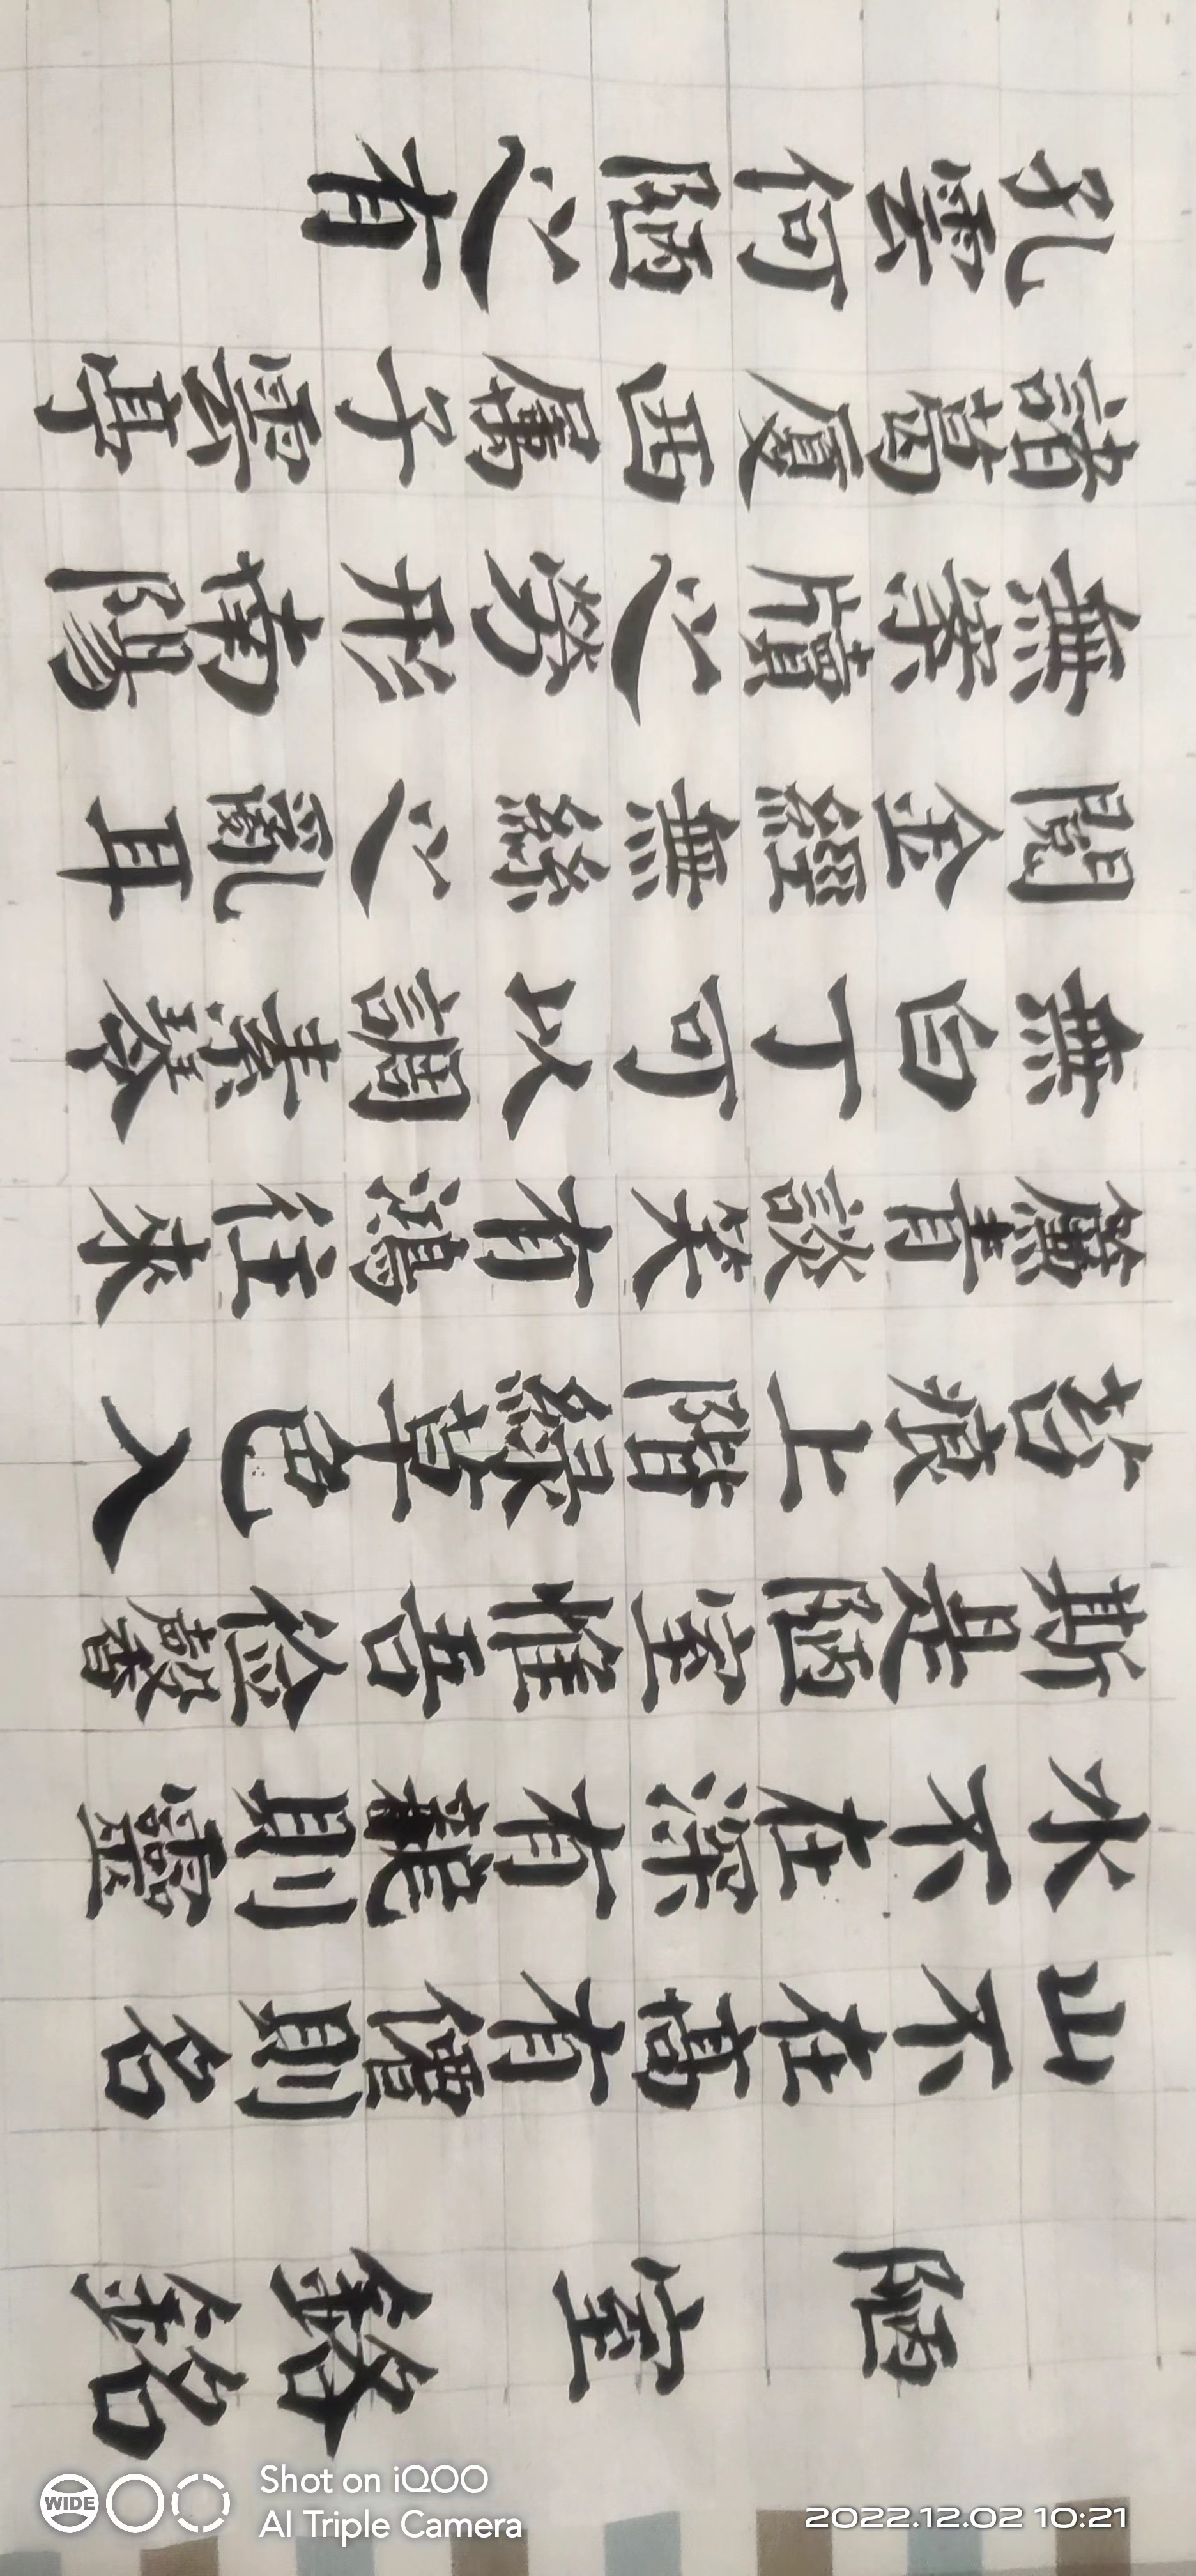 陋室鉻銘
山不在高有僊則名
水不在深有龍則靈
斯是陋室惟吾馨
苔痕上階綠草色入
簾青談笑有鴻往來
無白丁可以調素琴
閱金經無絲之亂耳
無案牘之勞形南陽
諸葛廈西子雲亭
孔雲何陋之有
WIDE
Shot on iQOO
AI Triple Camera
2022.12.02 10:21